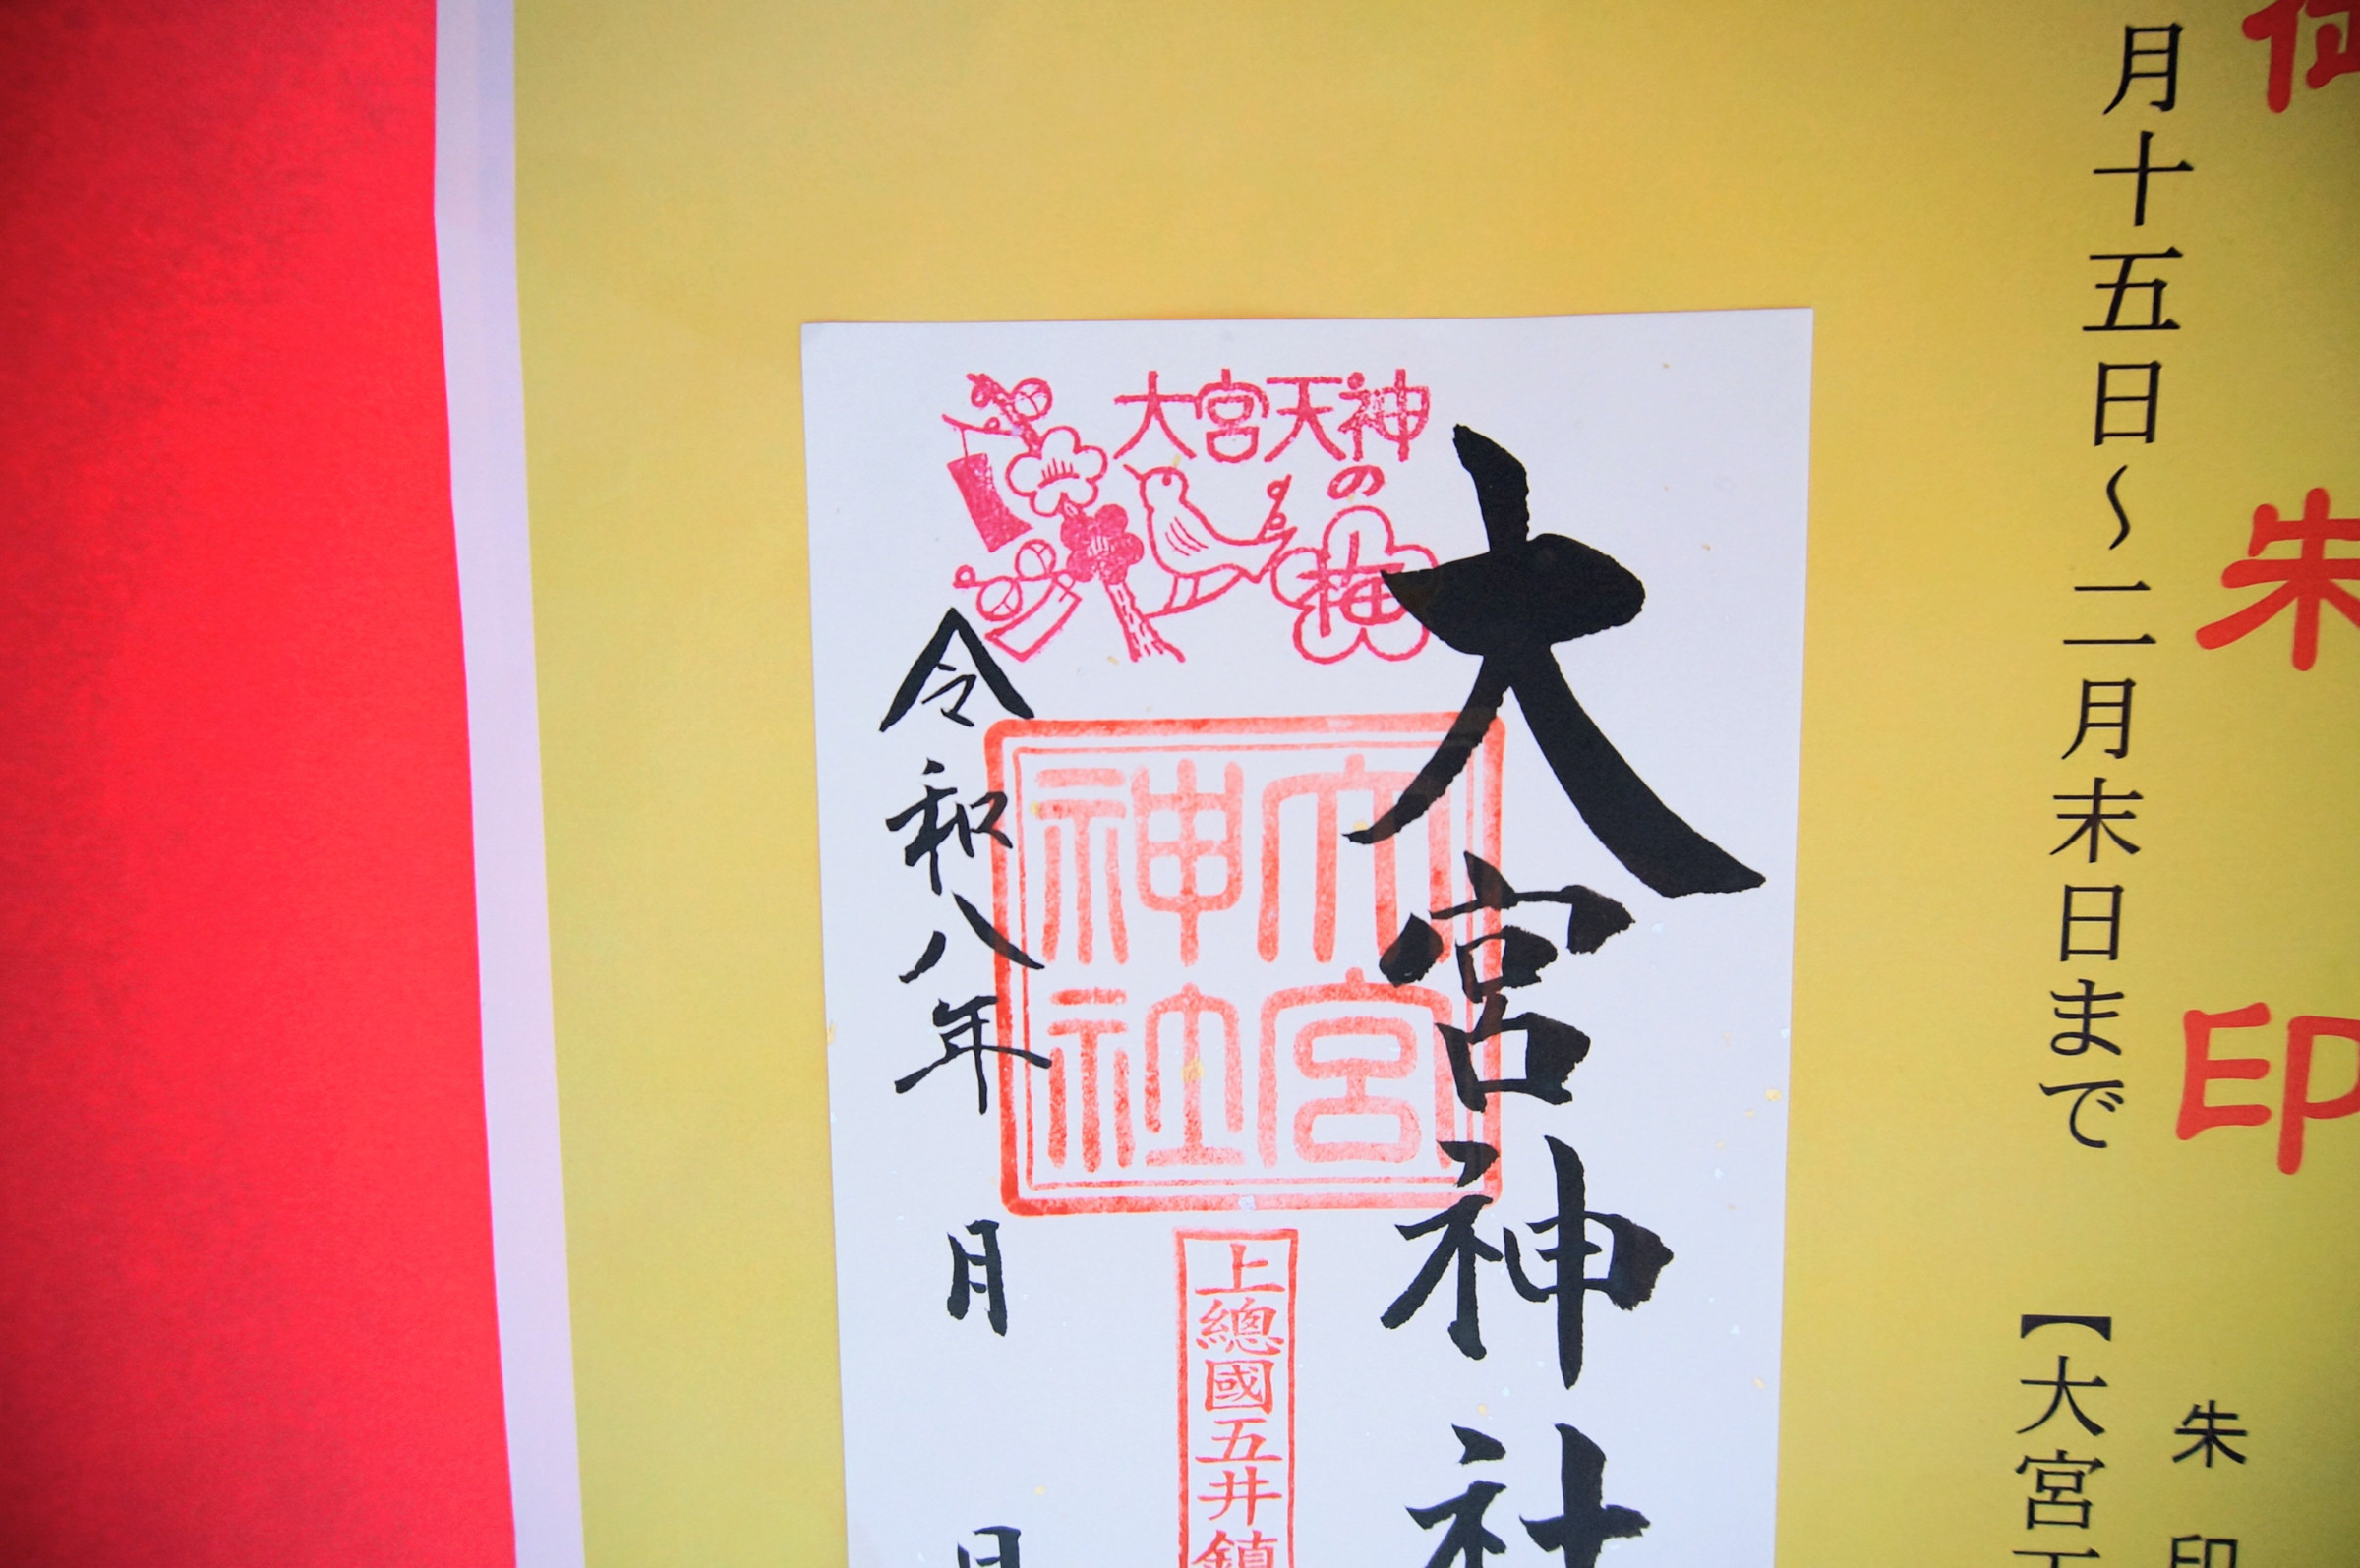 御朱印
朱印
月十五日～二月末日まで　【大宮天
大宮天神
の
梅
大宮神社
大宮
神社
上總國五井鎮
令和八年　月　日